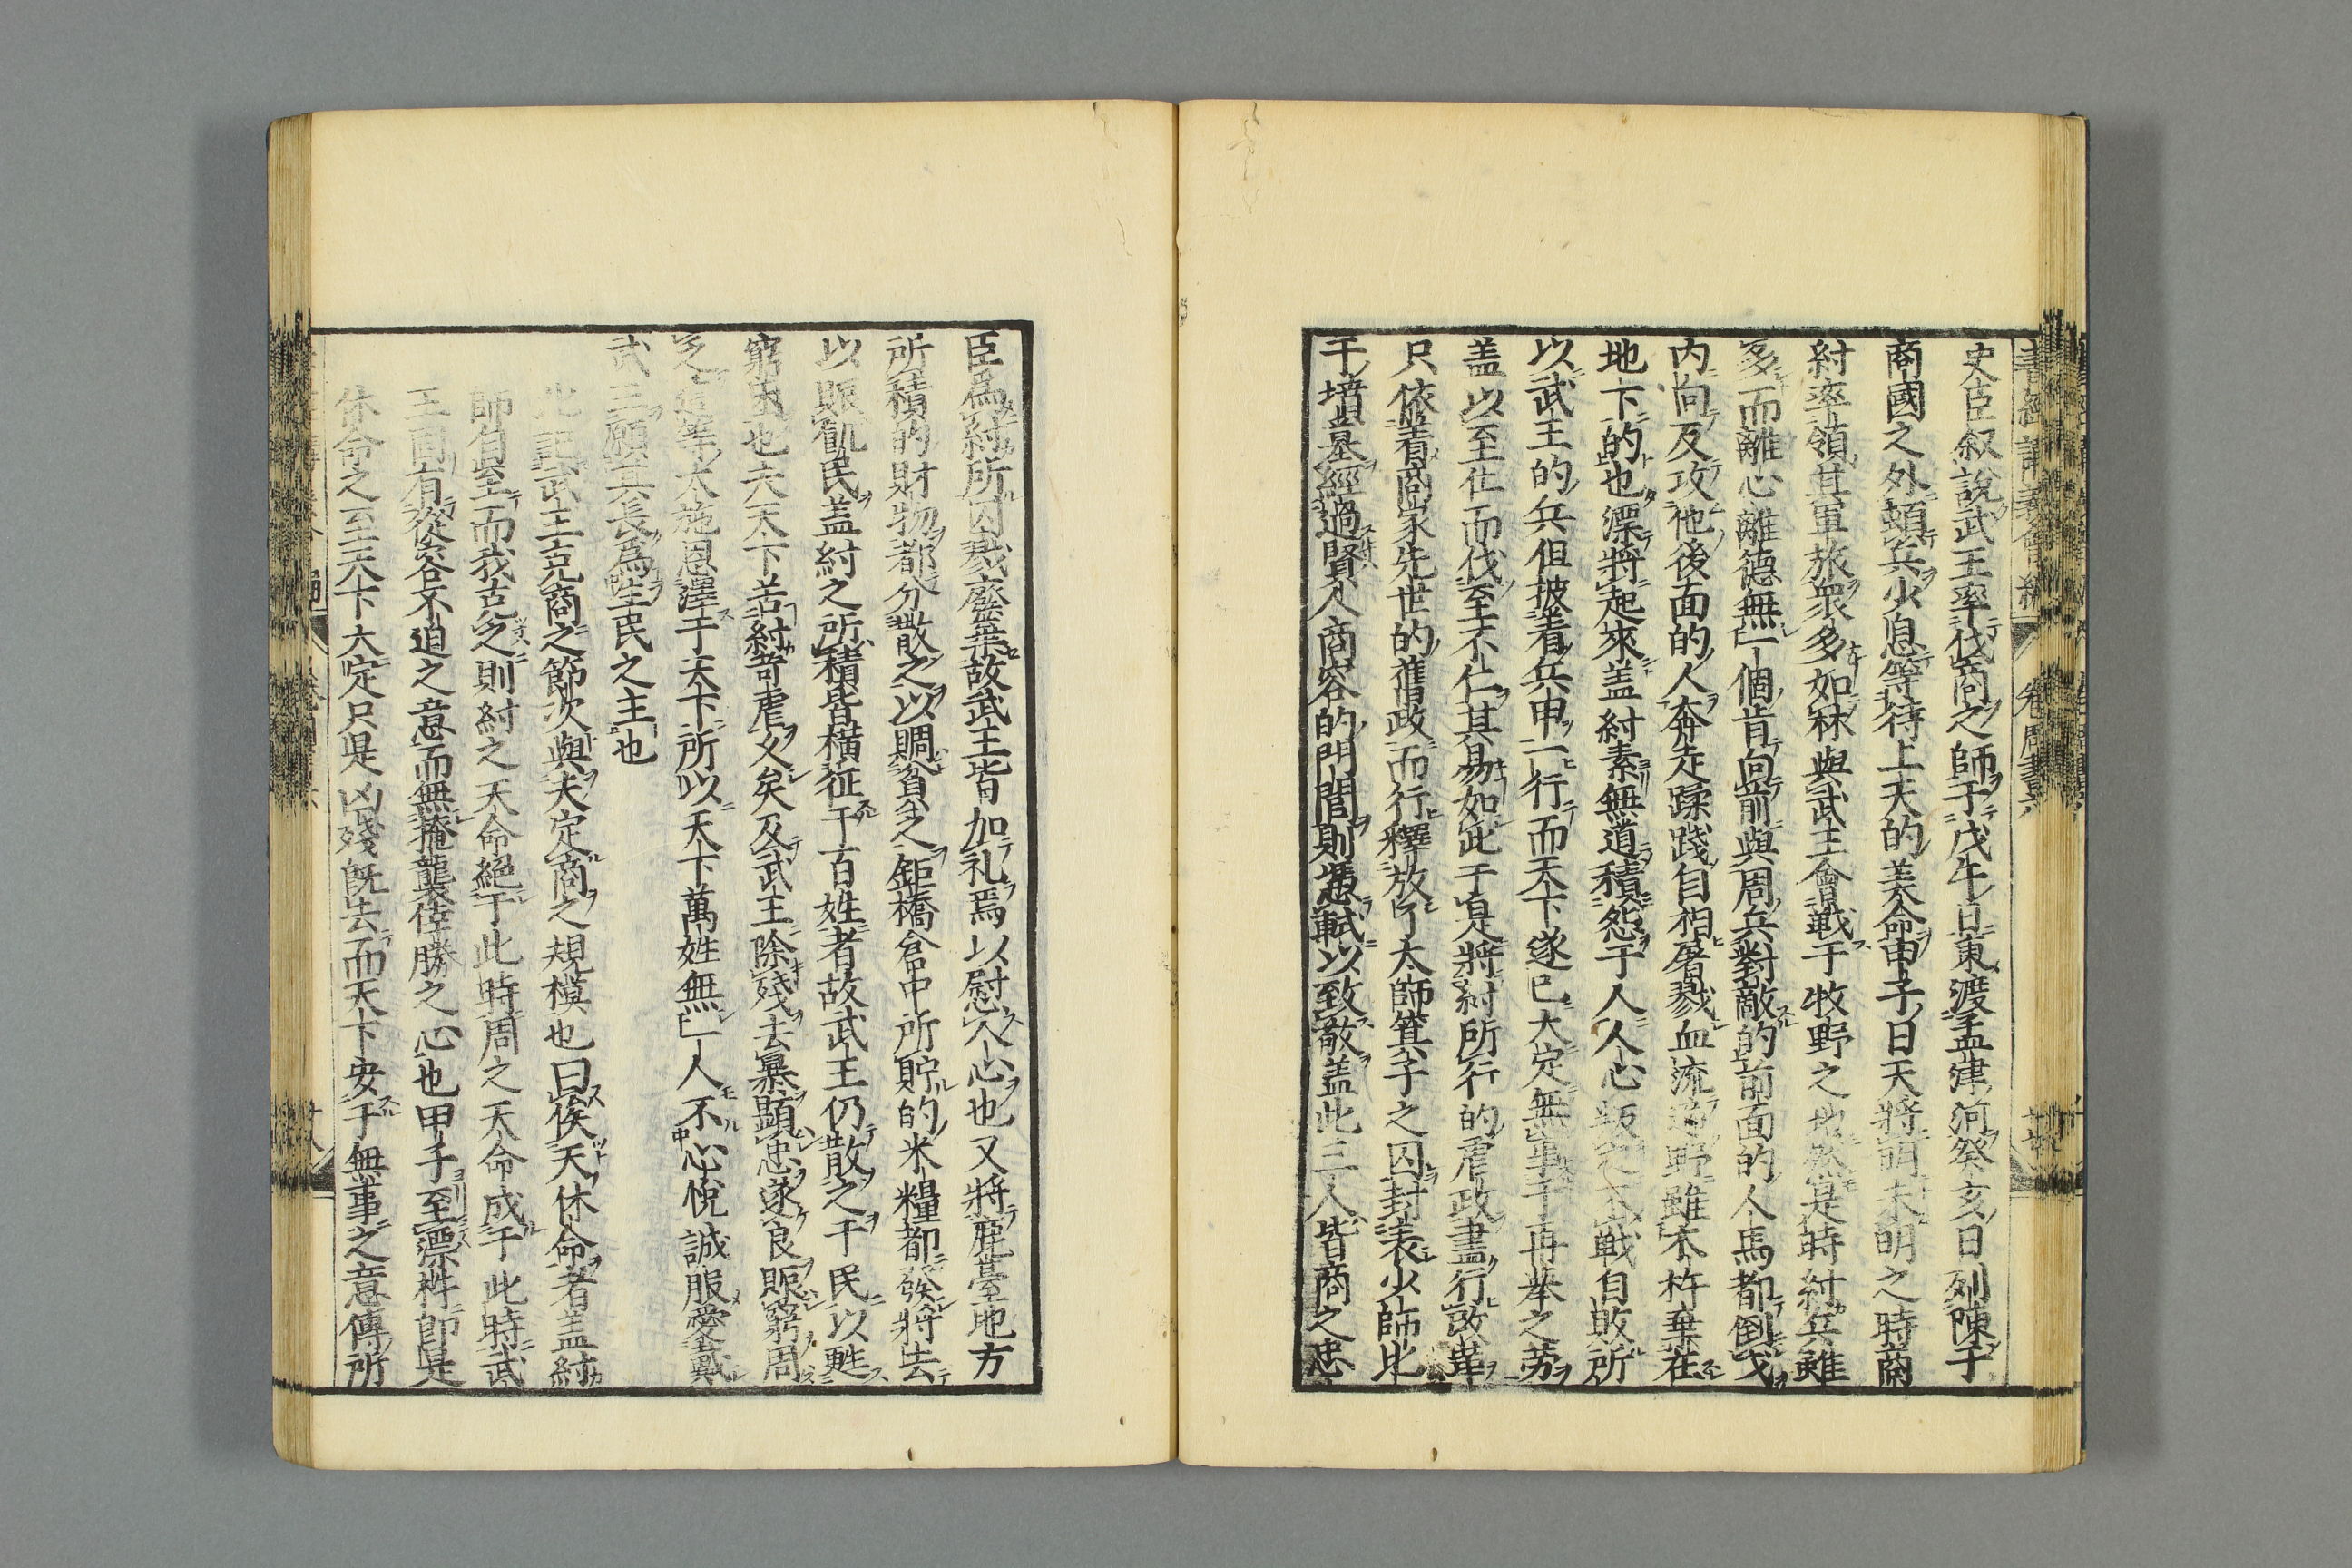 史臣叙說武王率伐商之師于戊午日東渡孟津河癸亥日列陳于
商國之外頓兵少息等待上天的美命甲子日天將明未明之時商
紂率領其軍旅衆多如林與武王會戰于牧野之地然是時紂兵雖
多而離心離德無一個肯向前與周兵對敵的前面的人馬都倒戈
内向反攻他後面的人奔走蹂踐自相屠戮血流遍野雖木杵棄在
地下的也漂將起來盖紂素無道積怨于人人心叛之不戰自敗所
以武王的兵但披着兵甲一行而天下遂已大定無事于再舉之勞
盖以至仁而伐至不仁其易如此于是將紂所行的虐政盡行改革
只依着商家先世的舊政而行釋放了太師箕子之囚封表少師比
干墳墓經過賢人商容的門閭則憑軾以致敬盖此三人皆商之忠
臣爲紂所囚戮廢棄故武王皆加礼焉以慰人心也又將鹿臺地方
所積的財物都分散之以賙貧乏鉅橋倉中所貯的米糧都發將去
以賑飢民盖紂之所積皆橫征于百姓者故武王仍散之于民以甦
窮困也夫天下苦紂苛虐久矣及武王除殘去暴顯忠遂良賑窮周
乏這等大施恩澤于天下所以天下萬姓無一人不心悅誠服愛戴
武王願共長爲生民之主也
此記武王克商之節次與夫定商之規模也曰俟天休命者盖紂
師自至而我克之則紂之天命絕于此時周之天命成于此時武
王固有從容不迫之意而無掩襲倖勝之心也甲子至漂杵即是
休命之至天下大定只是凶殘既去而天下安于無事之意傳所